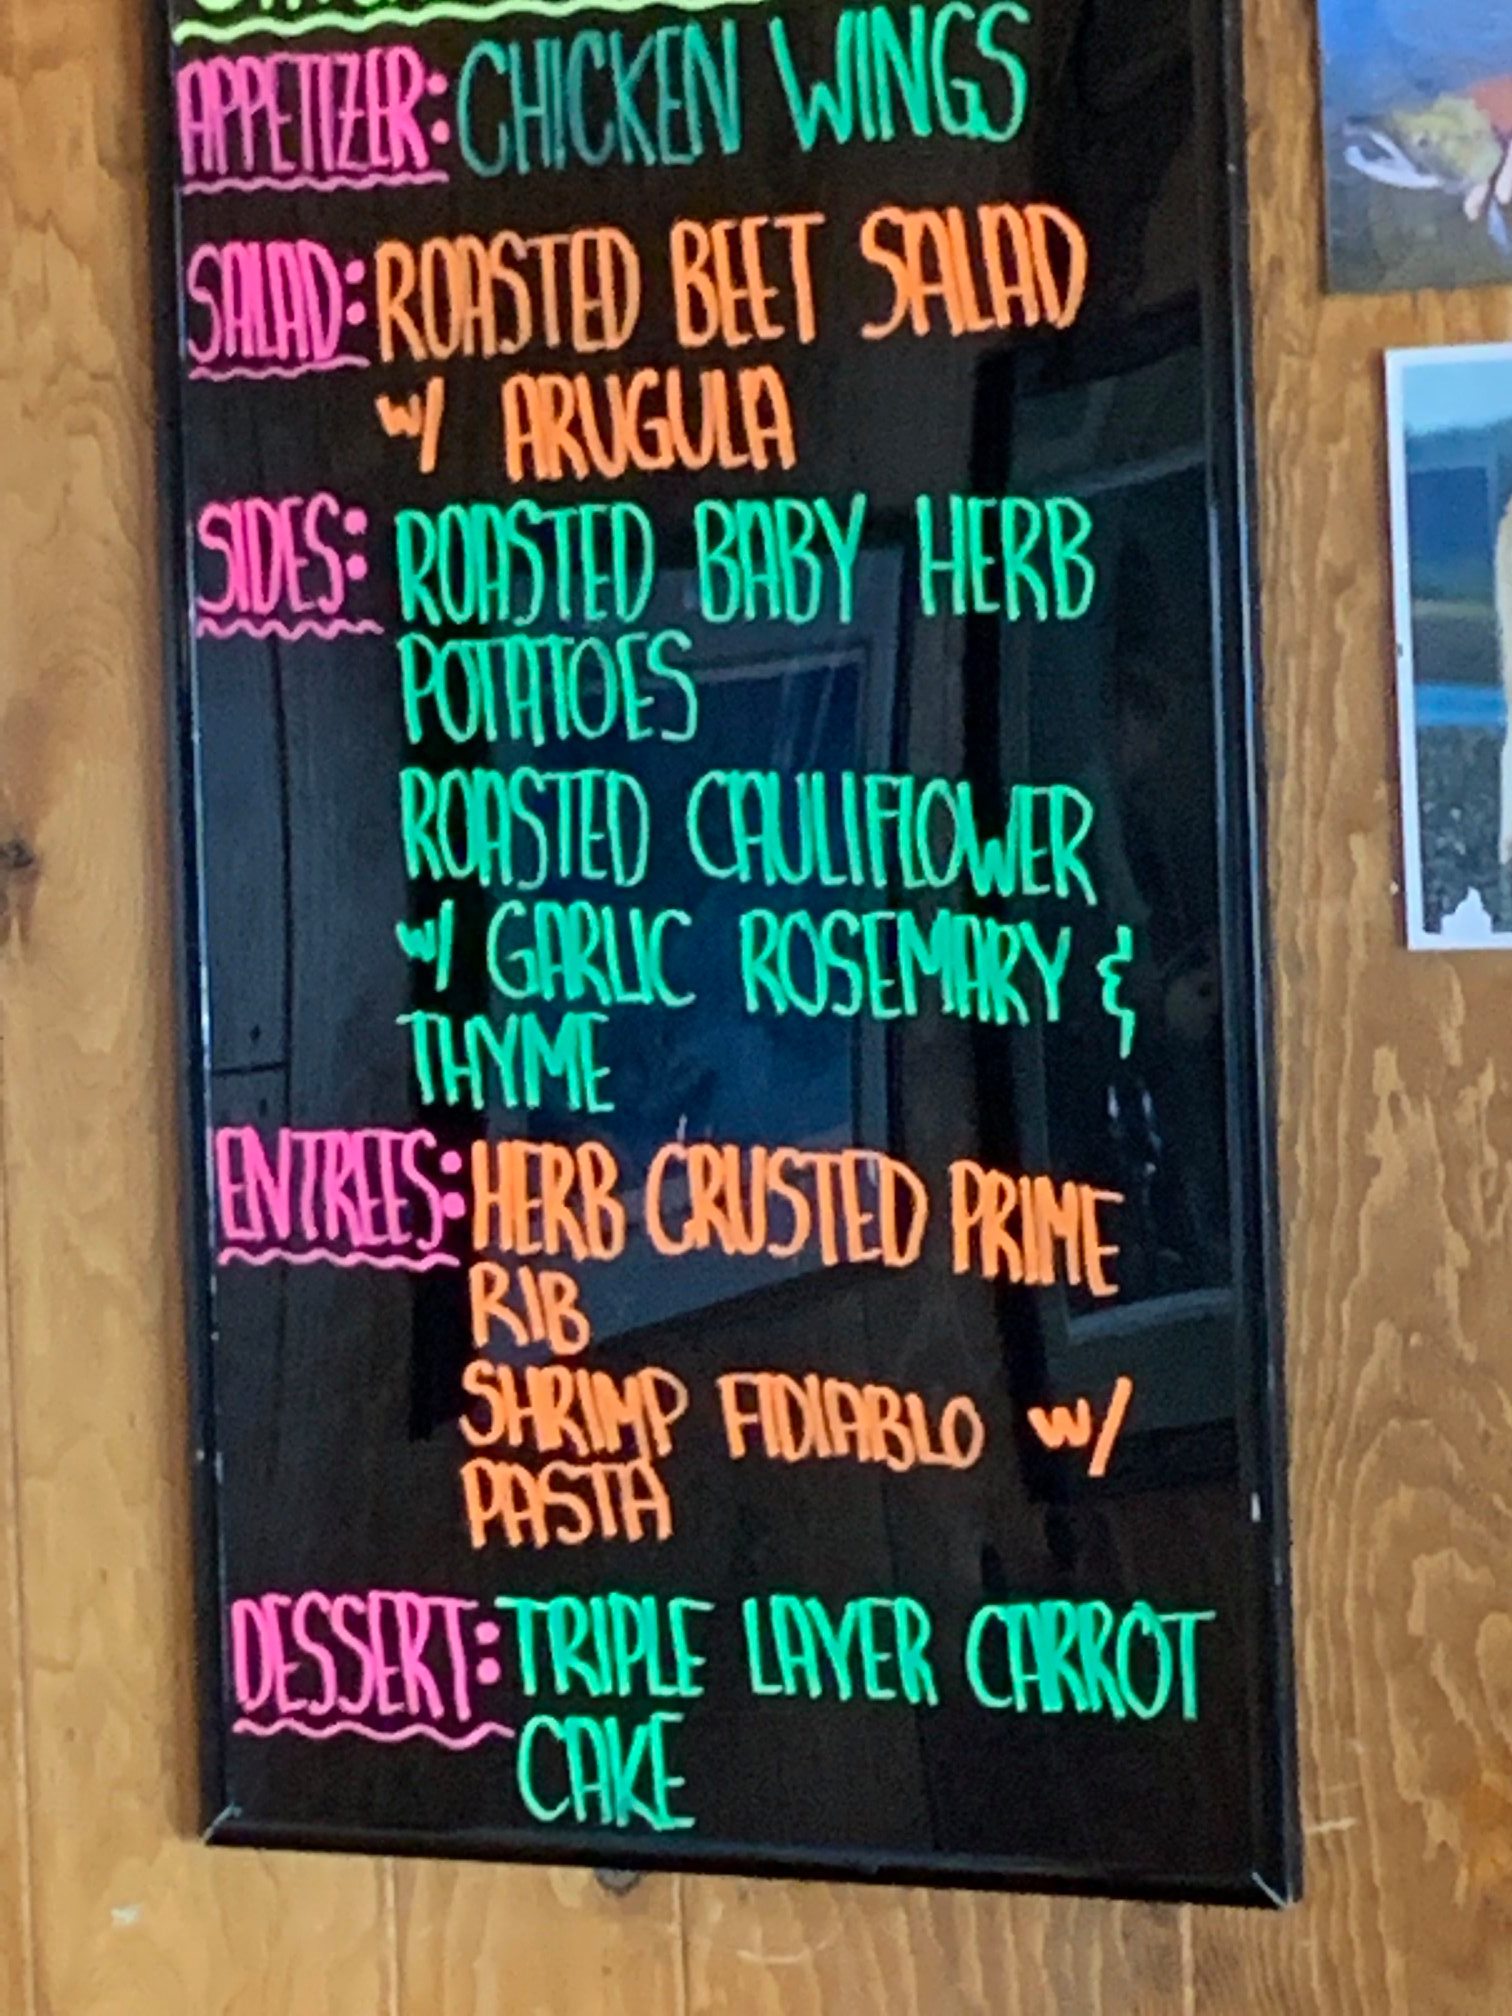 APPETIZER: CHICKEN WINGS
SALAD: ROASTED BEET SALAD
w/ ARUGULA
SIDES: ROASTED BABY HERB
POTATOES
ROASTED CAULIFLOWER
w/ GARLIC ROSEMARY &
THYME
ENTREES: HERB CRUSTED PRIME
RIB
SHRIMP FIDIABLO w/
PASTA
DESSERT: TRIPLE LAYER CARROT
CAKE